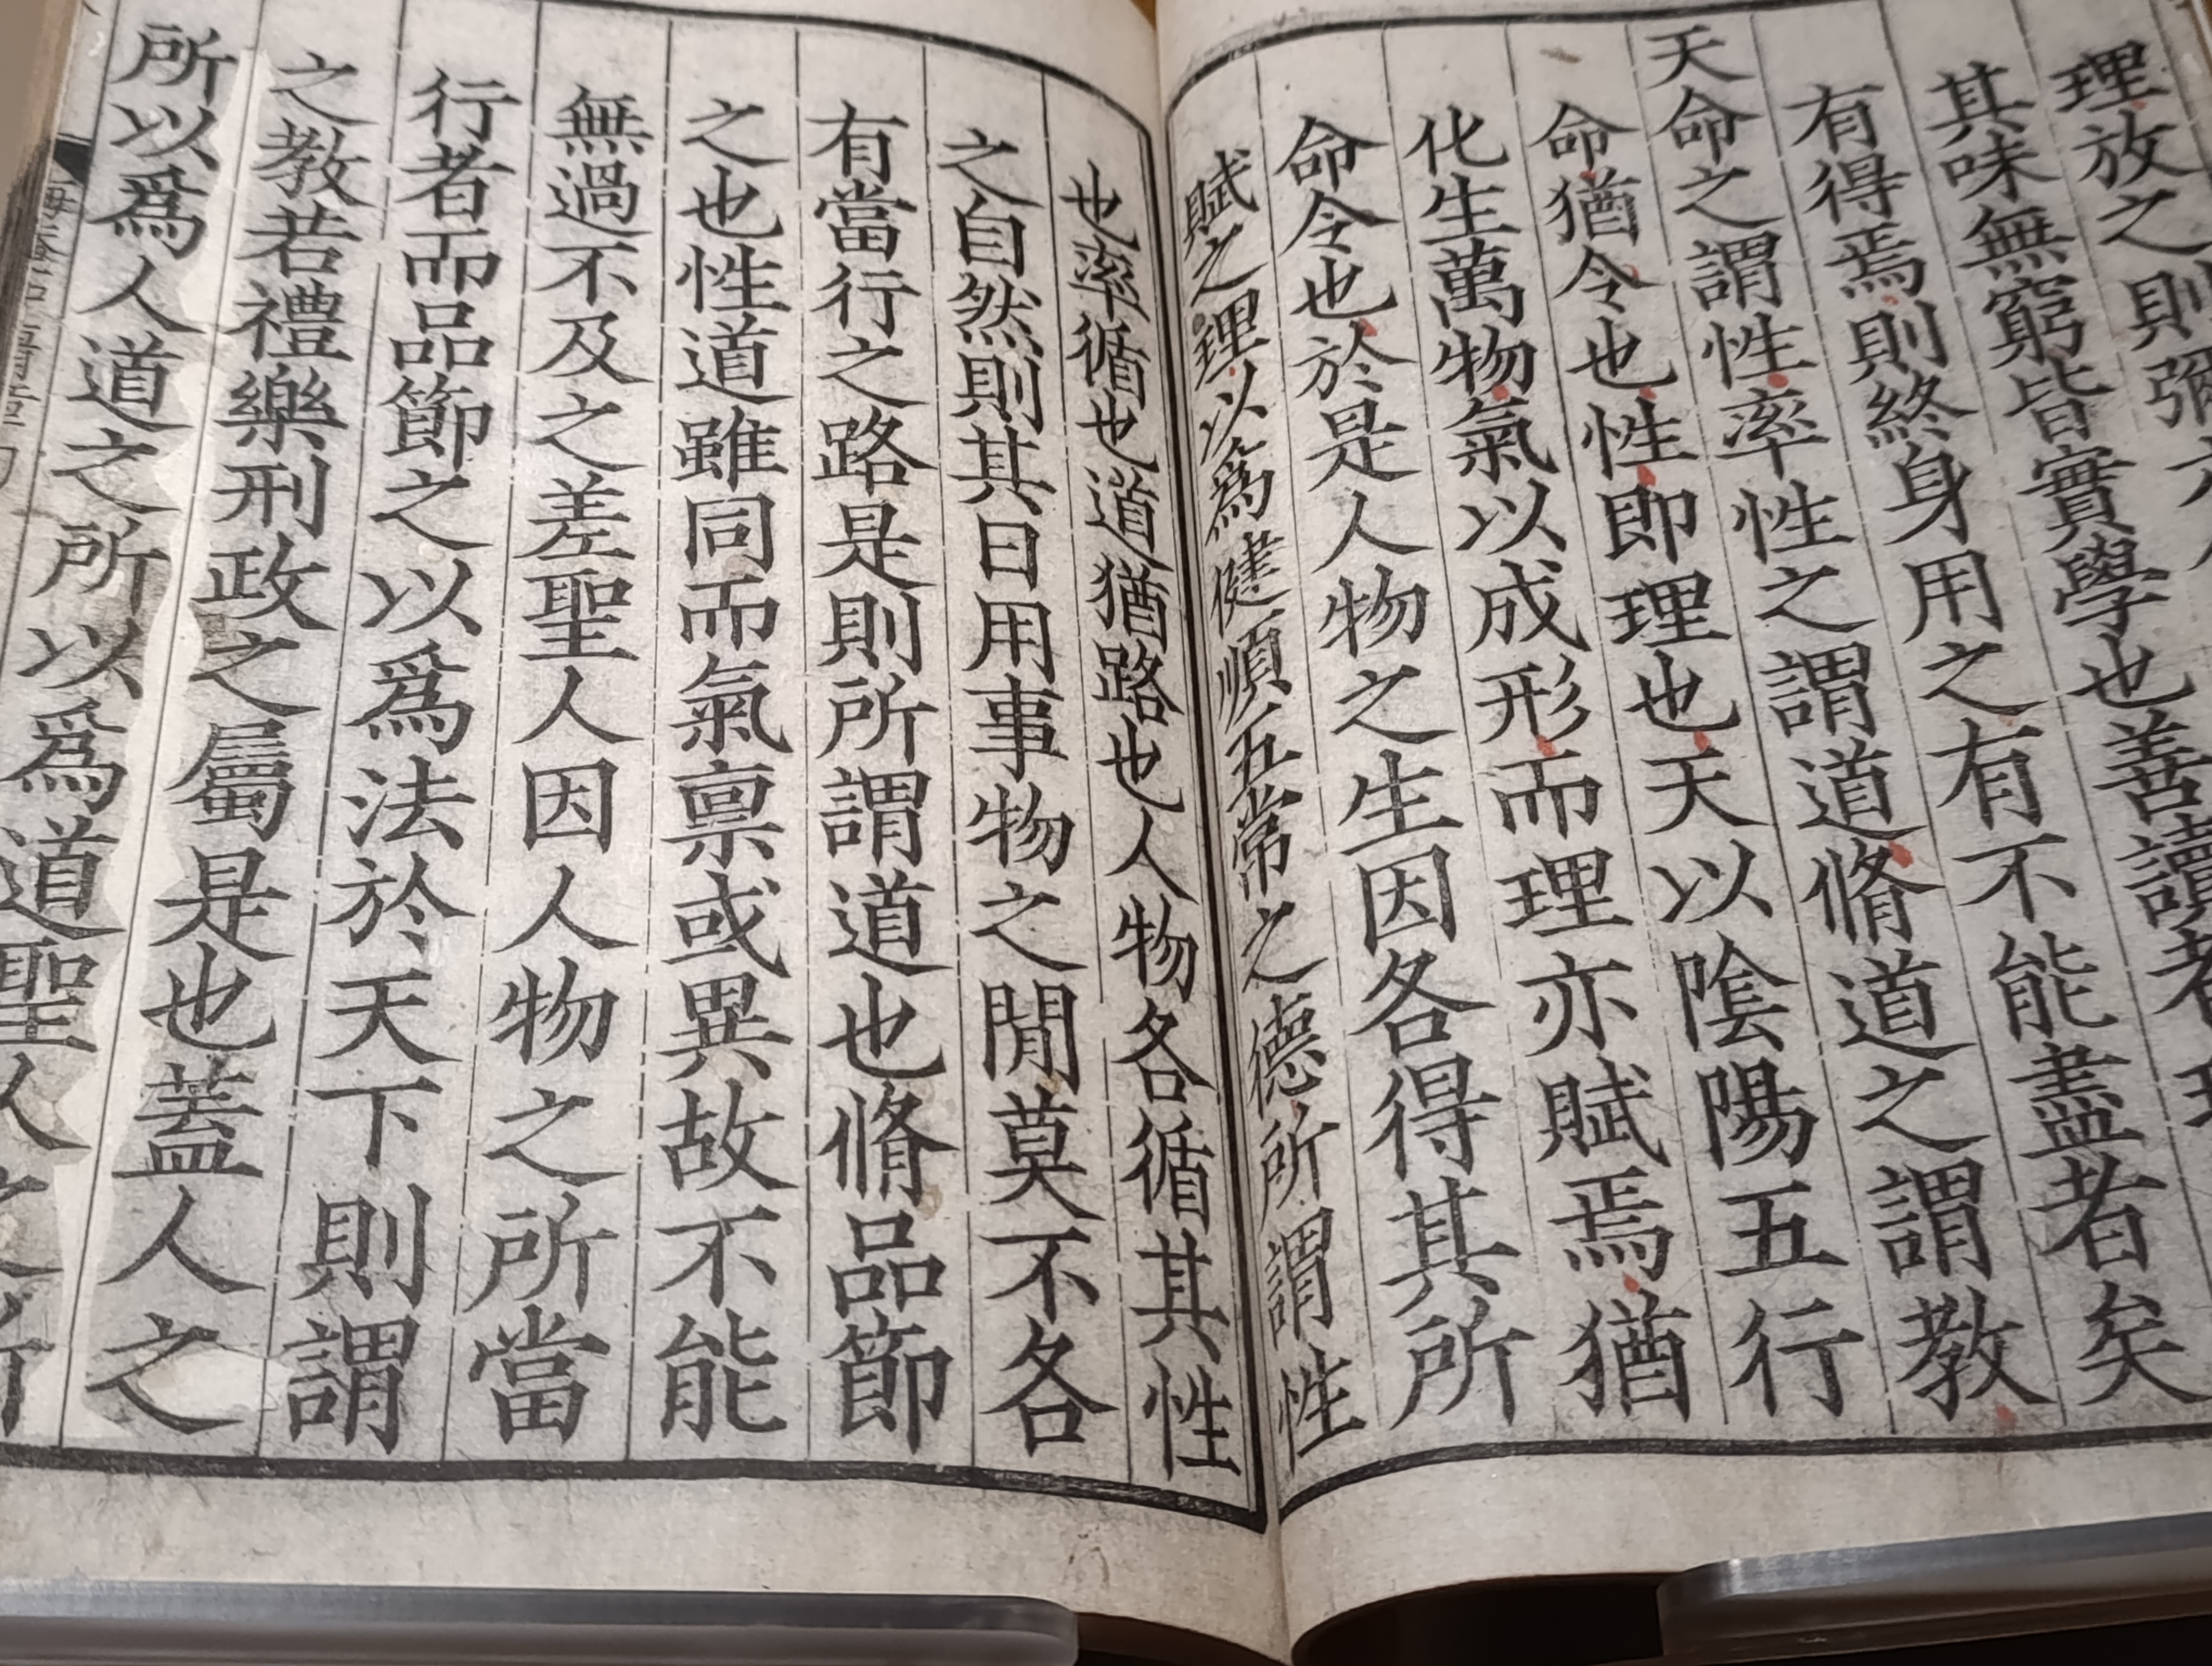 理放之則彌
其味無窮皆實學也善讀者
有得焉則終身用之有不能盡者矣
天命之謂性率性之謂道脩道之謂教
命猶令也性即理也天以陰陽五行
化生萬物氣以成形而理亦賦焉猶
命令也於是人物之生因各得其所
賦之理以爲健順五常之德所謂性
也率循也道猶路也人物各循其性
之自然則其日用事物之閒莫不各
有當行之路是則所謂道也脩品節
之也性道雖同而氣稟或異故不能
無過不及之差聖人因人物之所當
行者而品節之以爲法於天下則謂
之教若禮樂刑政之屬是也蓋人之
所以爲人道之所以爲道聖人之所